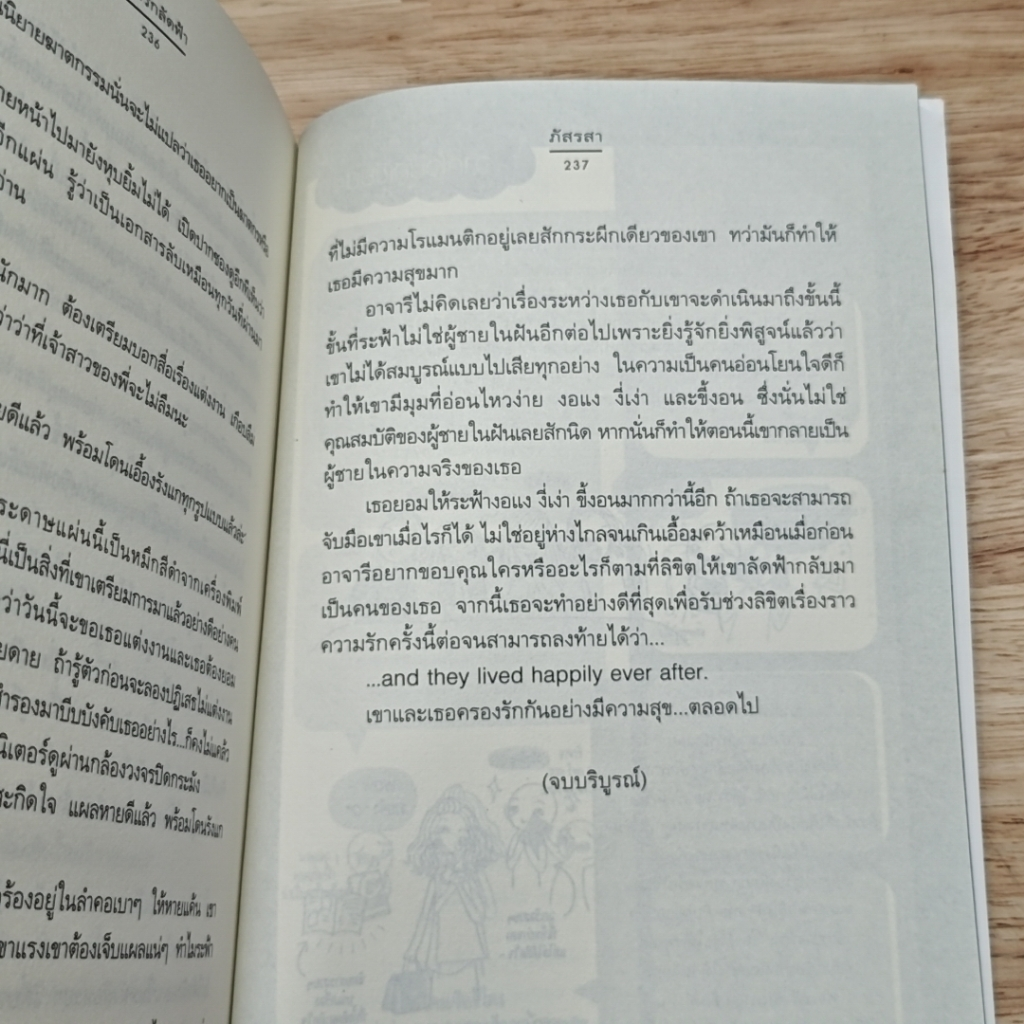 236
นนิยายฆาตกรรมนั่นจะไม่แปลว่าเธออยากเป็นฆาตกร
ายหน้าไปมายังหุบยิ้มไม่ได้ เปิดปากซองดูอีกที
อีกแผ่น รู้ว่าเป็นเอกสารลับเหมือนทุกวันที่ผ่านมา
นักมาก ต้องเตรียมบอกสื่อเรื่องแต่งงาน
ว่าที่เจ้าสาวของพี่จะไม่ลืมนะ
ยดีแล้ว พร้อมโดนเอื้องรังแกทุกรูปแบบแล้วล่ะ
ระดาษแผ่นนี้เป็นหมึกสีดำจากเครื่องพิมพ์
นี่เป็นสิ่งที่เขาเตรียมการมาแล้วอย่างดี
ว่าวันนี้จะขอเธอแต่งงานและเธอต้องยอม
ยดาย ถ้ารู้ตัวก่อนจะลองปฏิเสธไม่แต่งงาน
สำรองมาบีบบังคับเธออย่างไร...ก็คงไม่แคล้ว
นิเตอร์ดูผ่านกล้องวงจรปิดกระมัง
สะกิดใจ แผลหายดีแล้ว พร้อมโดนรังแก
ร้องอยู่ในลำคอเบาๆ ให้หายแค้น เขา
ขาแรงเขาต้องเจ็บแผลแน่ๆ ทำไมระฟ้า
ภัสรสา
237
ที่ไม่มีความโรแมนติกอยู่เลยสักกระผีกเดียวของเขา ทว่ามันก็ทำให้
เธอมีความสุขมาก
อาจารีไม่คิดเลยว่าเรื่องระหว่างเธอกับเขาจะดำเนินมาถึงขั้นนี้
ขั้นที่ระฟ้าไม่ใช่ผู้ชายในฝันอีกต่อไปเพราะยิ่งรู้จักยิ่งพิสูจน์แล้วว่า
เขาไม่ได้สมบูรณ์แบบไปเสียทุกอย่าง ในความเป็นคนอ่อนโยนใจดีก็
ทำให้เขามีมุมที่อ่อนไหวง่าย งอแง งี่เง่า และขี้งอน ซึ่งนั่นไม่ใช่
คุณสมบัติของผู้ชายในฝันเลยสักนิด หากนั่นก็ทำให้ตอนนี้เขากลายเป็น
ผู้ชายในความจริงของเธอ
เธอยอมให้ระฟ้างอแง งี่เง่า ขี้งอนมากกว่านี้อีก ถ้าเธอจะสามารถ
จับมือเขาเมื่อไรก็ได้ ไม่ใช่อยู่ห่างไกลจนเกินเอื้อมคว้าเหมือนเมื่อก่อน
อาจารีอยากขอบคุณใครหรืออะไรก็ตามที่ลิขิตให้เขาลัดฟ้ากลับมา
เป็นคนของเธอ จากนี้เธอจะทำอย่างดีที่สุดเพื่อรับช่วงลิขิตเรื่องราว
ความรักครั้งนี้ต่อจนสามารถลงท้ายได้ว่า...
...and they lived happily ever after.
เขาและเธอครองรักกันอย่างมีความสุข...ตลอดไป
(จบบริบูรณ์)